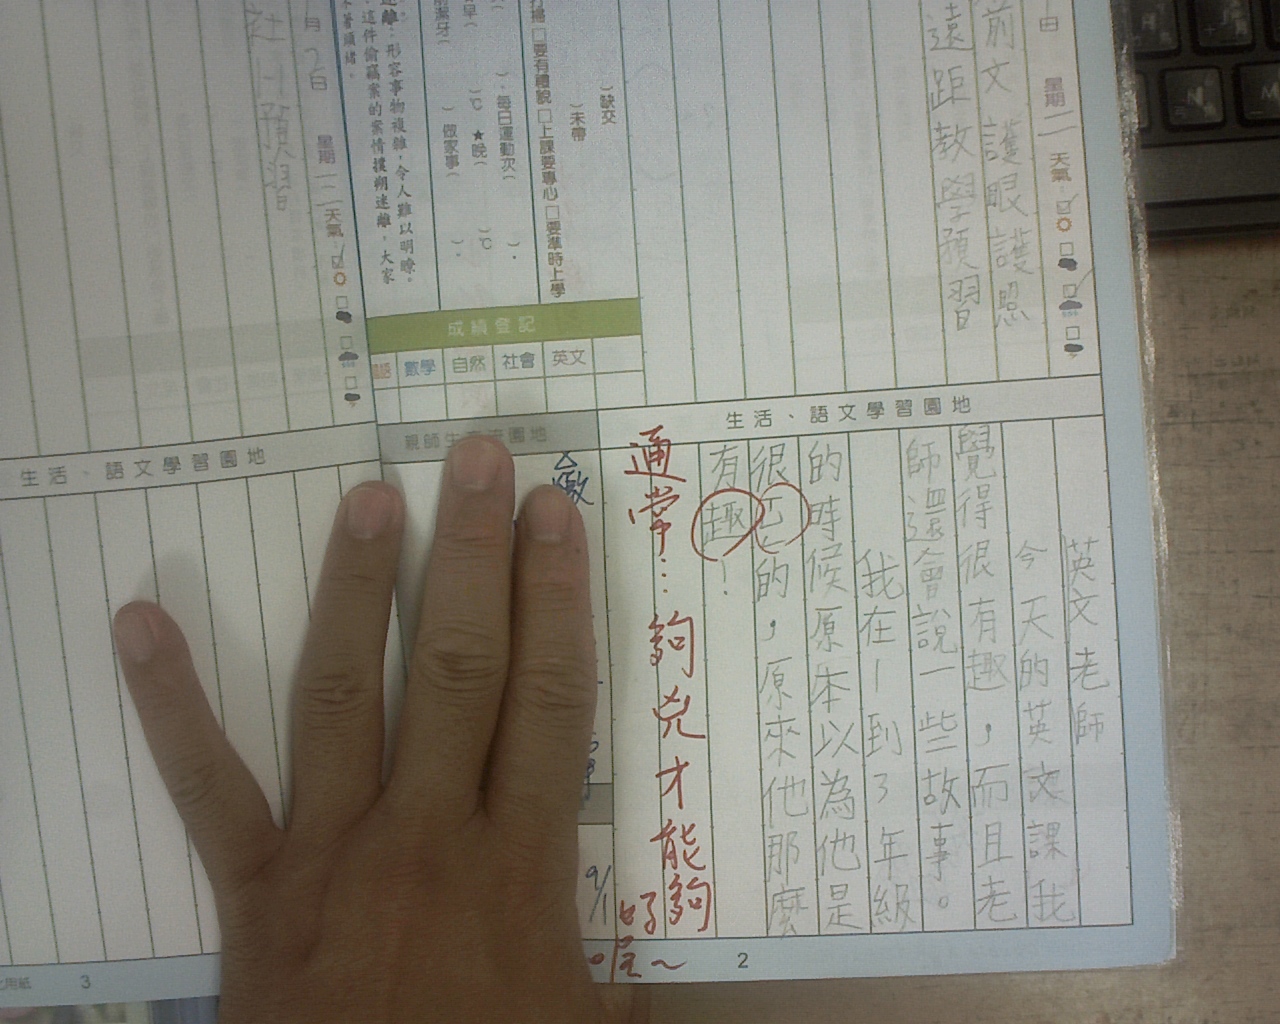 前文 護眼護照
遠距教學預習
星期二 天氣
缺交
未帶
□要有禮貌 □上課要專心 □要準時上學
每日運動次(
)℃ ★晚( )℃
做家事(
形容事物複雜,令人難以明瞭。
這件偷竊案的案情撲朔迷離,大家
星期三 天氣
社 預習
成績登記
數學 自然 社會 英文
生活、語文學習園地
英文老師
今天的英文課我
覺得很有趣,而且老
師還會說一些故事。
我在1到3年級
的時候原本以為他是
很ㄒㄩㄥ的,原來他那麼
有趣!
通常…夠兇才能夠
好喔~
9/1
2
生活、語文學習園地
3